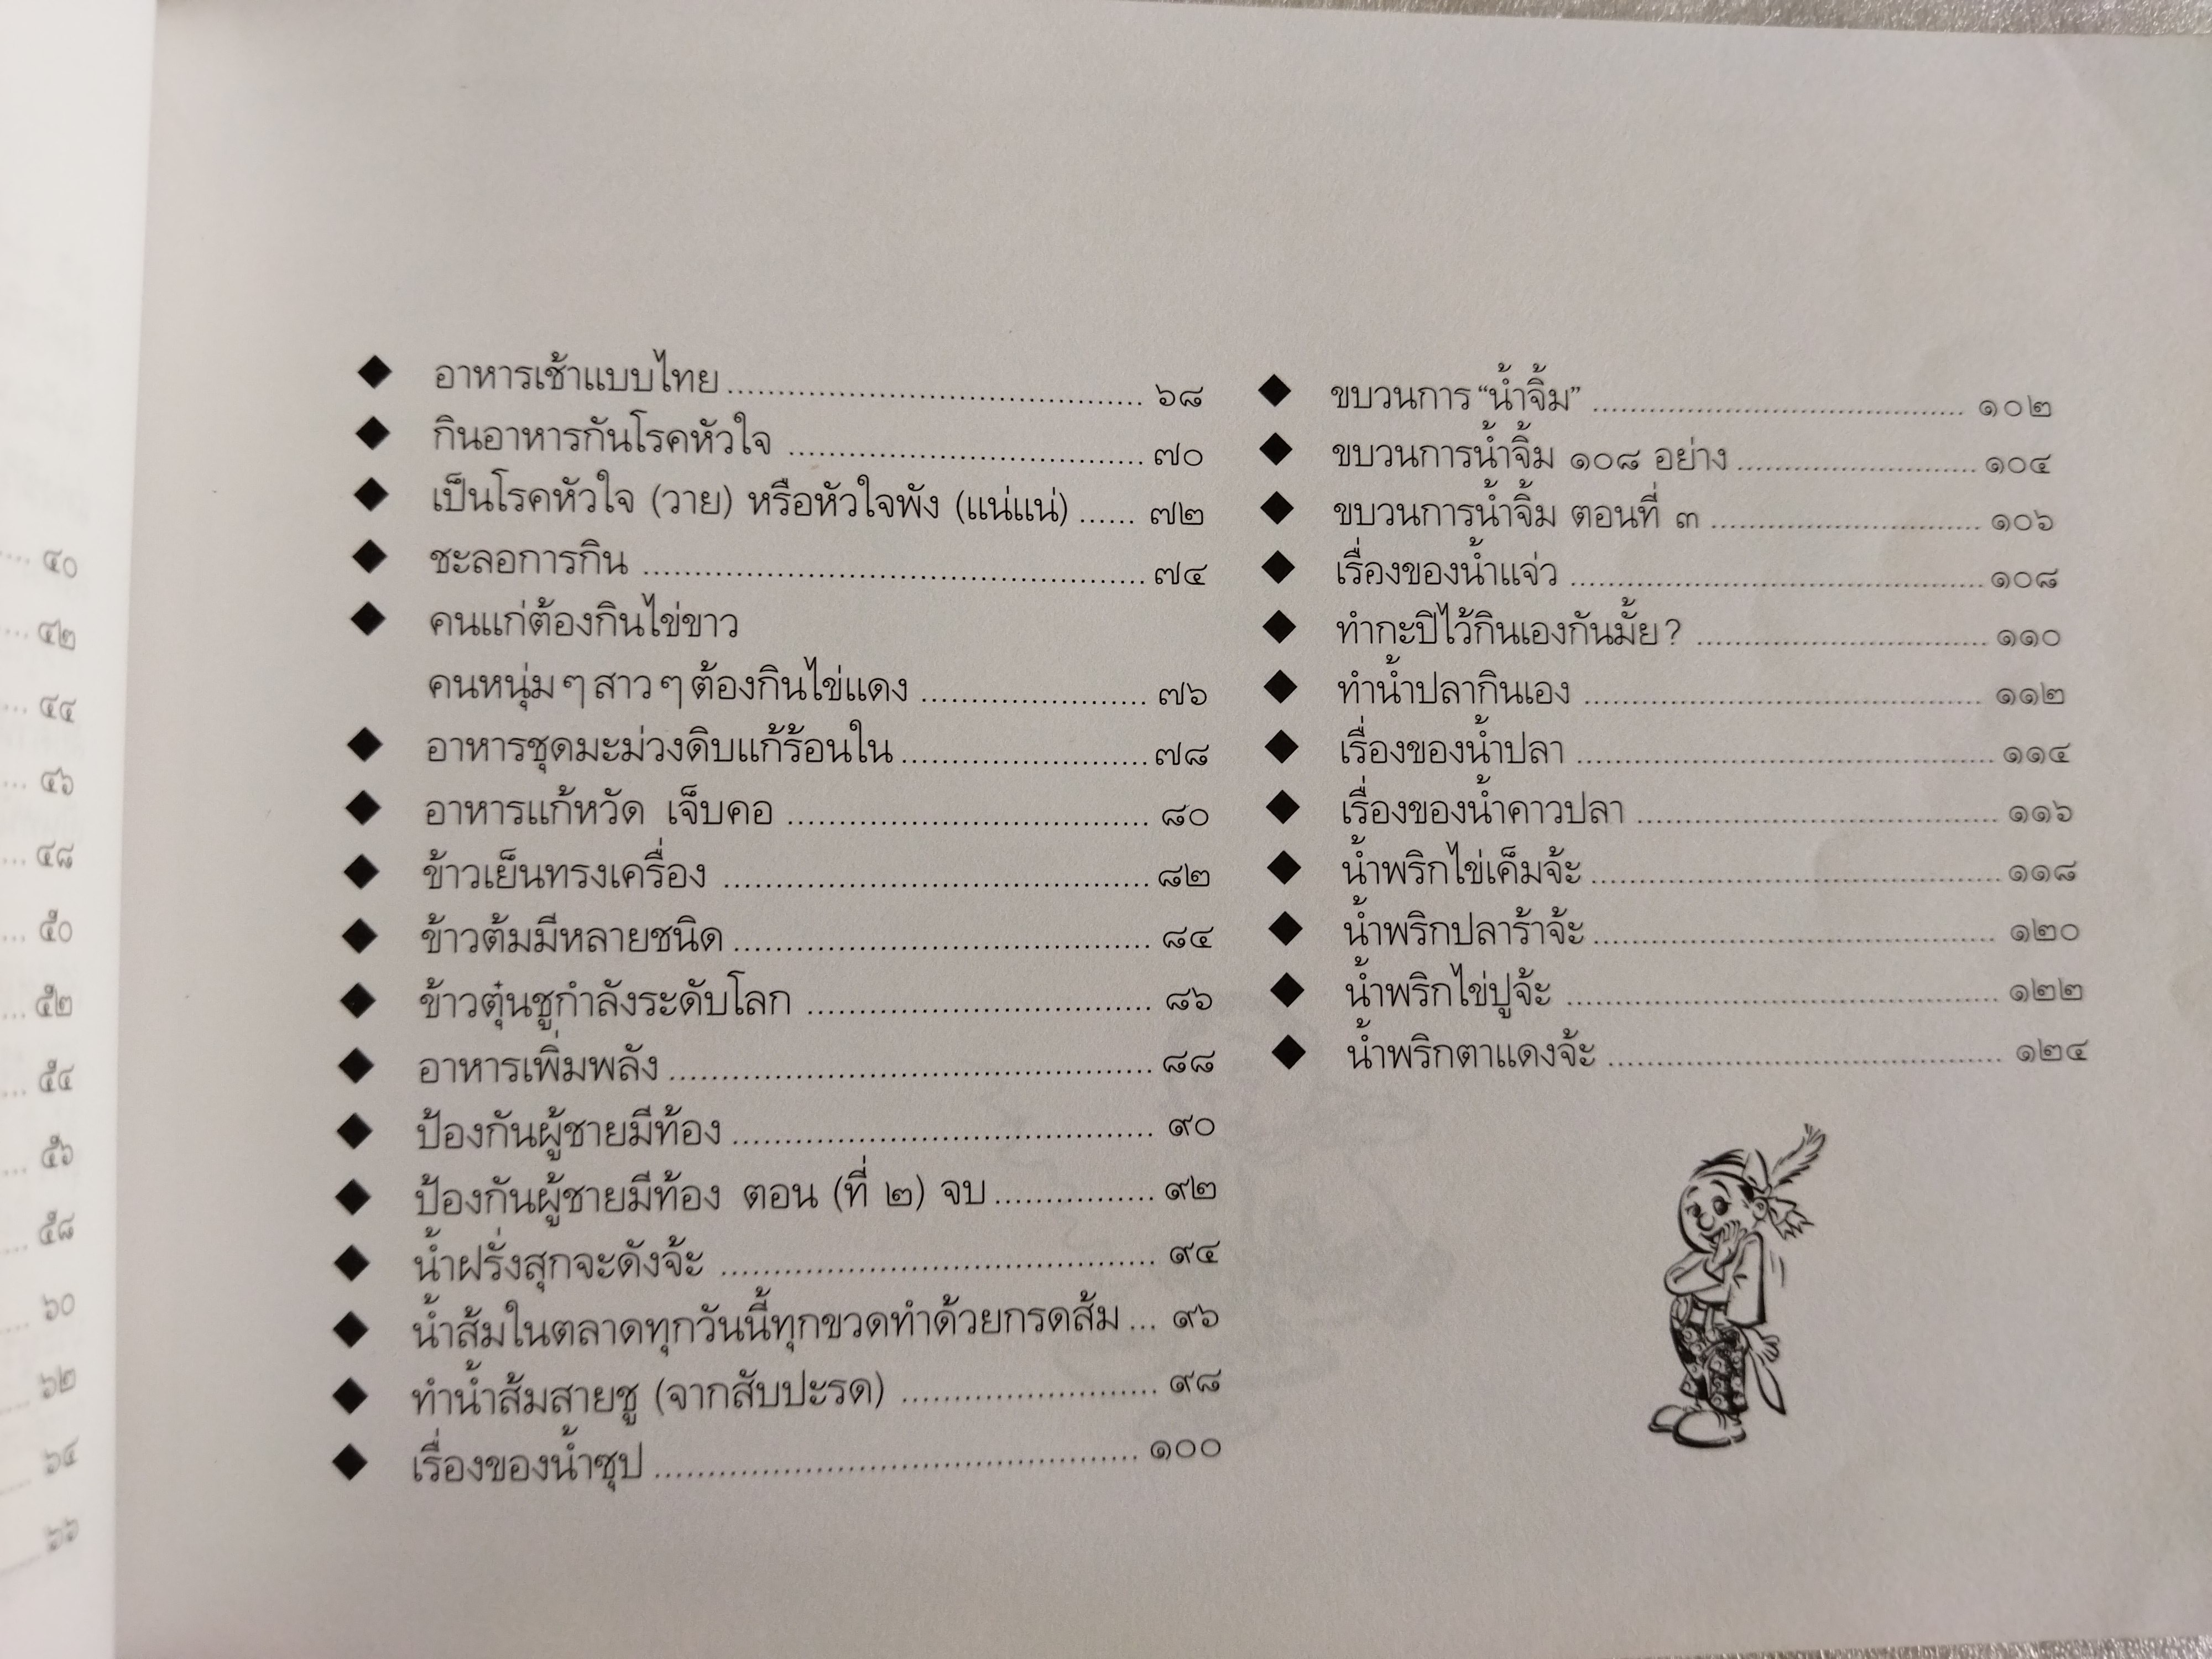 ๔๐
๔๒
๔๔
๔๖
๔๘
๕๐
๕๒
๕๔
๕๖
๕๘
๖๐
๖๒
๖๔
๖๖
◆ อาหารเช้าแบบไทย ........................................ ๖๘
◆ กินอาหารกันโรคหัวใจ ................................... ๗๐
◆ เป็นโรคหัวใจ (วาย) หรือหัวใจพัง (แน่แน่) ...... ๗๒
◆ ชะลอการกิน ................................................ ๗๔
◆ คนแก่ต้องกินไข่ขาว
คนหนุ่มๆ สาวๆ ต้องกินไข่แดง ...................... ๗๖
◆ อาหารชุดมะม่วงดิบแก้ร้อนใน ........................ ๗๘
◆ อาหารแก้หวัด เจ็บคอ ................................... ๘๐
◆ ข้าวเย็นทรงเครื่อง ......................................... ๘๒
◆ ข้าวต้มมีหลายชนิด ........................................ ๘๔
◆ ข้าวตุ๋นชูกำลังระดับโลก ................................. ๘๖
◆ อาหารเพิ่มพลัง .............................................. ๘๘
◆ ป้องกันผู้ชายมีท้อง ........................................ ๙๐
◆ ป้องกันผู้ชายมีท้อง ตอน (ที่ ๒) จบ ................ ๙๒
◆ น้ำฝรั่งสุกจะดังจ้ะ ......................................... ๙๔
◆ น้ำส้มในตลาดทุกวันนี้ทุกขวดทำด้วยกรดส้ม ... ๙๖
◆ ทำน้ำส้มสายชู (จากสับปะรด) ......................... ๙๘
◆ เรื่องของน้ำซุป .............................................. ๑๐๐
◆ ขบวนการ “น้ำจิ้ม” ........................................ ๑๐๒
◆ ขบวนการน้ำจิ้ม ๑๐๘ อย่าง .......................... ๑๐๔
◆ ขบวนการน้ำจิ้ม ตอนที่ ๓ ............................. ๑๐๖
◆ เรื่องของน้ำแจ่ว ............................................ ๑๐๘
◆ ทำกะปิไว้กินเองกันมั้ย? ................................ ๑๑๐
◆ ทำน้ำปลากินเอง ........................................... ๑๑๒
◆ เรื่องของน้ำปลา ............................................. ๑๑๔
◆ เรื่องของน้ำคาวปลา ....................................... ๑๑๖
◆ น้ำพริกไข่เค็มจ้ะ ............................................ ๑๑๘
◆ น้ำพริกปลาร้าจ้ะ ............................................ ๑๒๐
◆ น้ำพริกไข่ปูจ้ะ ............................................... ๑๒๒
◆ น้ำพริกตาแดงจ้ะ ............................................ ๑๒๔